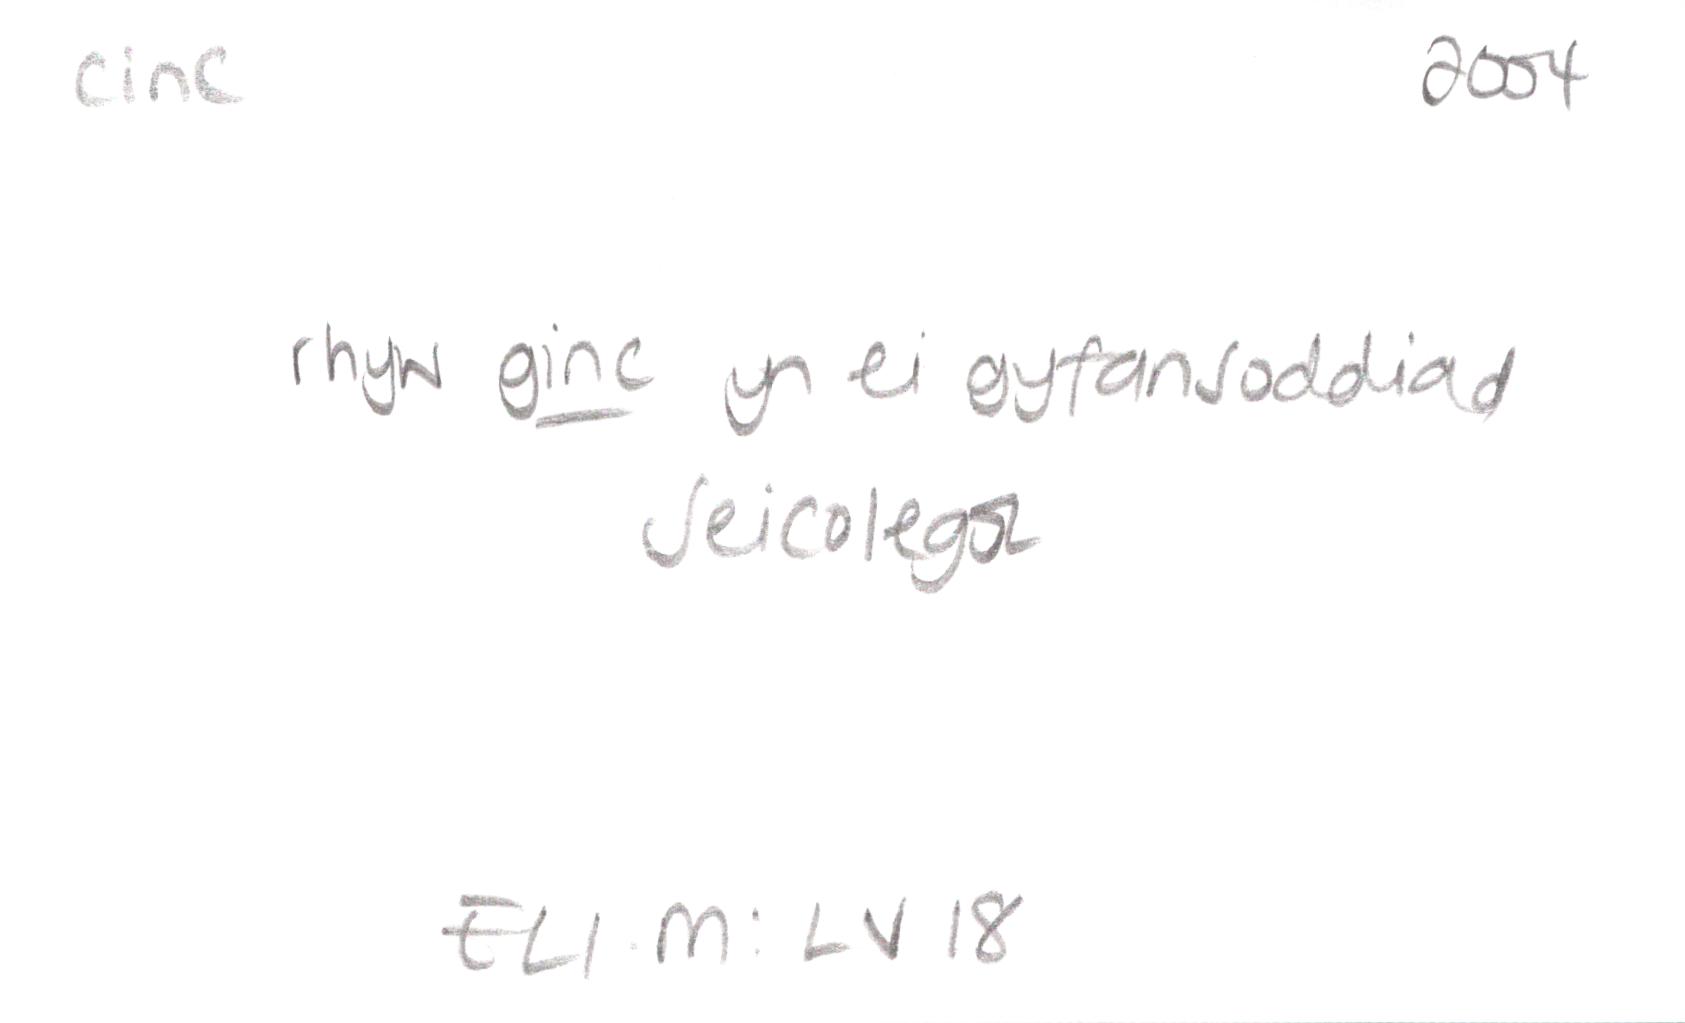 cinc 2004
rhyw ginc yn ei gyfansoddiad
seicolegol
ELl.M: LV 18